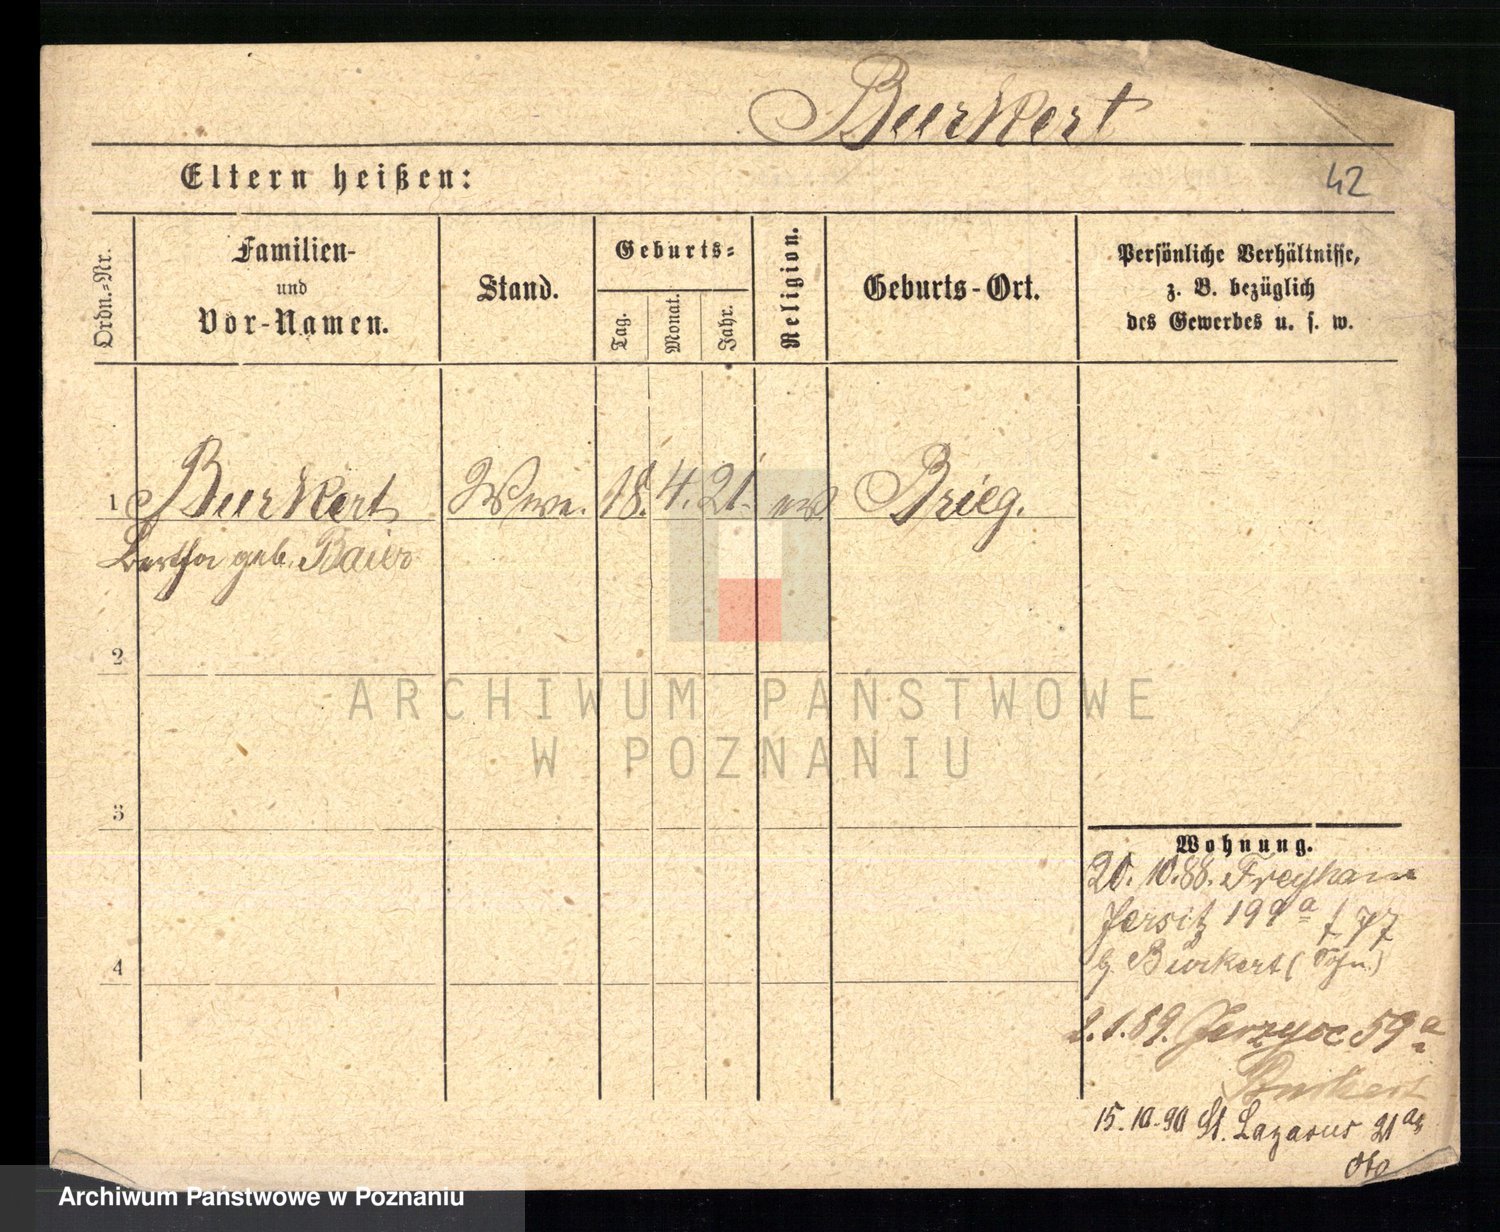 Burkert
Eltern heißen:
42
Ordn.-Nr.
Familien-
und
Vor-Namen.
Stand.
Geburts-
Tag.
Monat.
Jahr.
Religion.
Geburts-Ort.
Persönliche Verhältnisse,
z. B. bezüglich
des Gewerbes u. s. w.
1 Burkert Wwe. 18. 4. 21. ev. Brieg.
Bertha geb. Baier
2
3
4
Wohnung.
20. 10. 88. Freyhan
Jersitz 199a
b/ Burkert (Sohn)
2. 1. 89. Jerzyce 59a
Burkert
15.10.90 St. Lazarus 21a
ARCHIWUM PAŃSTWOWE
W POZNANIU
Archiwum Państwowe w Poznaniu